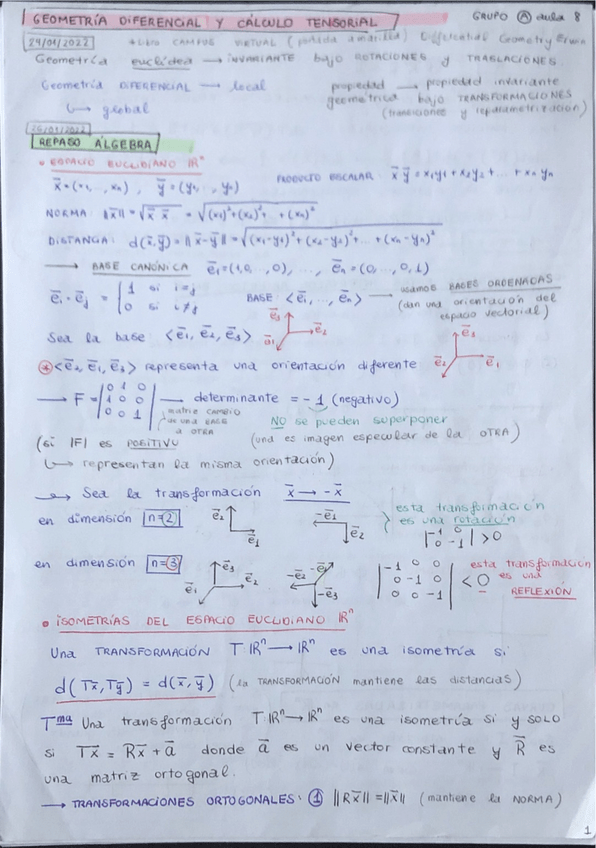 GEOMETRÍA DIFERENCIAL Y CÁLCULO TENSORIAL GRUPO A aula 8
24/01/2022 + Libro CAMPUS VIRTUAL (portada amarilla) Differential Geometry
Geometría euclídea → INVARIANTE bajo ROTACIONES y TRASLACIONES
Geometría DIFERENCIAL → local propiedad geométrica → propiedad invariante bajo TRANSFORMACIONES
↳ global (transiciones y reparametrización)
26/01/2022
REPASO ÁLGEBRA
• ESPACIO EUCLIDIANO ℝⁿ
x̄ = (x₁, ..., xₙ), ȳ = (y₁, ..., yₙ) PRODUCTO ESCALAR: x̄ ȳ = x₁y₁ + x₂y₂ + ... + xₙyₙ
NORMA: ‖x̄‖ = √(x̄ x̄) = √((x₁)² + (x₂)² + ... + (xₙ)²)
DISTANCIA: d(x̄, ȳ) = ‖x̄ - ȳ‖ = √((x₁-y₁)² + (x₂-y₂)² + ... + (xₙ-yₙ)²)
→ BASE CANÓNICA ē₁ = (1, 0, ..., 0), ..., ēₙ = (0, ..., 0, 1)
ēᵢ · ēⱼ = { 1 si i=j
0 si i≠j BASE <ē₁, ..., ēₙ> → usamos BASES ORDENADAS
(dan una orientación del
espacio vectorial)
Sea la base <ē₁, ē₂, ē₃> ē₃ ē₂ ē₁
ē₃ ē₂ ē₁
* <ē₂, ē₁, ē₃> representa una orientación diferente
→ F = | 0 1 0
1 0 0
0 0 1 | → determinante = -1 (negativo)
matriz CAMBIO
de una BASE
a OTRA
NO se pueden superponer
(si |F| es POSITIVO (una es imagen especular de la OTRA)
↳ representan la misma orientación)
→ Sea la transformación x̄ → -x̄
en dimensión n=2 ē₂ ē₁ -ē₁ -ē₂ esta transformación
es una rotación
| -1 0
0 -1 | > 0
en dimensión n=3 ē₃ ē₂ ē₁ -ē₂ -ē₁ -ē₃ | -1 0 0
0 -1 0
0 0 -1 | < 0 esta transformación
es una
REFLEXIÓN
• ISOMETRÍAS DEL ESPACIO EUCLIDIANO ℝⁿ
Una TRANSFORMACIÓN T: ℝⁿ → ℝⁿ es una isometría si
d(Tx̄, Tȳ) = d(x̄, ȳ) (la TRANSFORMACIÓN mantiene las distancias)
Tᵐᵃ Una transformación T: ℝⁿ → ℝⁿ es una isometría si y solo
si Tx̄ = Rx̄ + ā donde ā es un vector constante y R̄ es
una matriz ortogonal.
→ TRANSFORMACIONES ORTOGONALES: ① ‖Rx̄‖ = ‖x̄‖ (mantiene la NORMA)
1